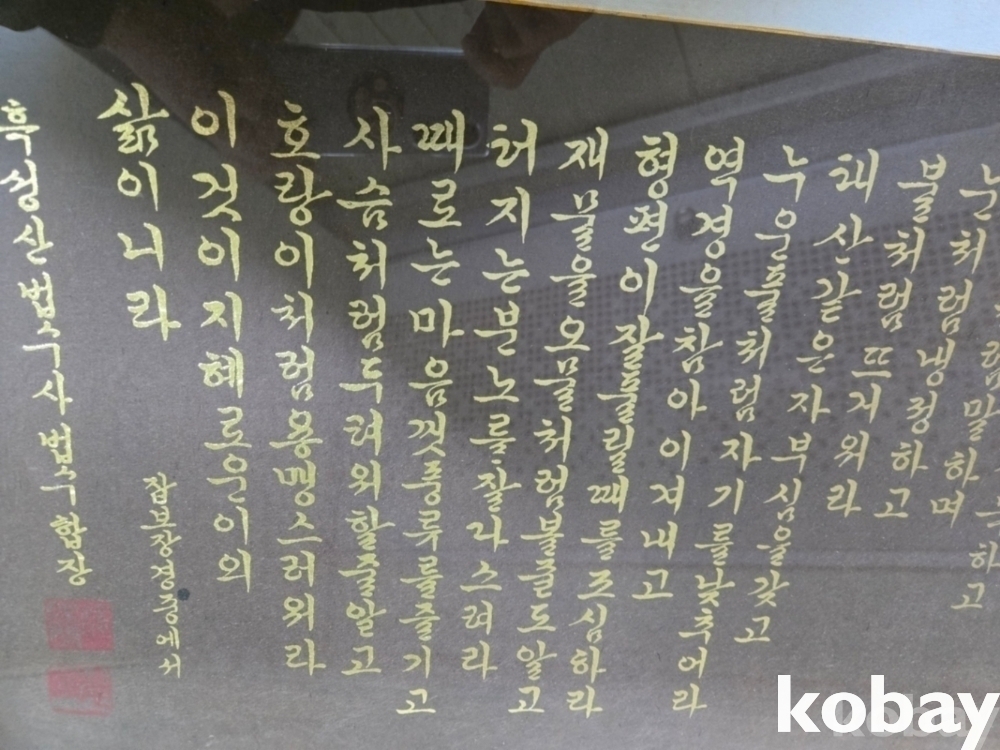 하고
말하며
눈처럼냉정하고
불처럼뜨거워라
태산같은자부심을갖고
누운풀처럼자기를낮추어라
역경을참아이겨내고
형편이잘풀릴때를조심하라
재물을오물처럼볼줄도알고
터지는분노를잘다스려라
때로는마음껏풍류를즐기고
사슴처럼두려워할줄알고
호랑이처럼용맹스러워라
이것이지혜로운이의
삶이니라
잡보장경중에서
흑성산법수사 법수합장
kobay